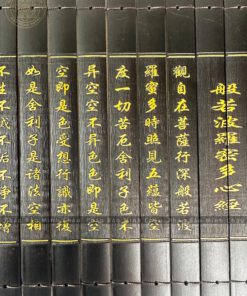 般若波羅蜜多心經
觀自在菩薩行深般若波
羅蜜多時照見五蘊皆空
度一切苦厄舍利子色不
異空空不異色色即是空
空即是色受想行識亦復
如是舍利子是諸法空相
不生不滅不垢不淨不增